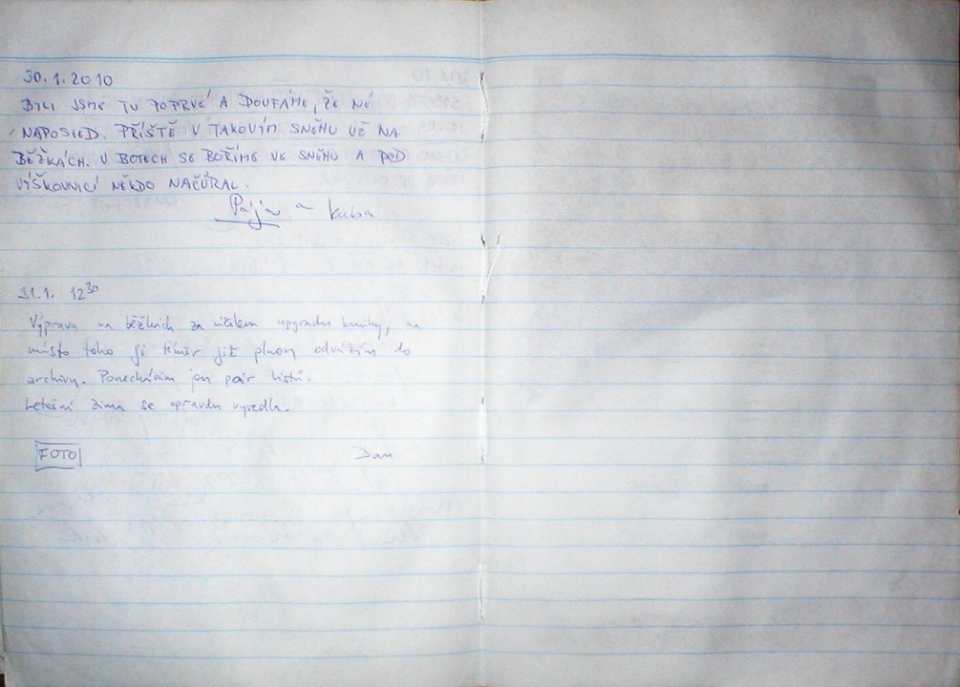 30.1.2010
BYLI JSME TU POPRVÉ A DOUFÁME, ŽE NE
NAPOSLED. PŘÍŠTĚ V TAKOVÝM SNĚHU UŽ NA
BĚŽKÁCH. V BOTECH SE BOŘÍME VE SNĚHU A POD
VÝŠKOVNICÍ NĚKDO NAČŮRAL.
Pája a Kuba
31.1. 12³⁰
Výprava na běžkách za účelem upgradu knihy, na
místo toho ji téměř již plnou odvážím do
archivu. Ponechávám jen pár listů.
Letošní zima se opravdu vyvedla.
FOTO Dan